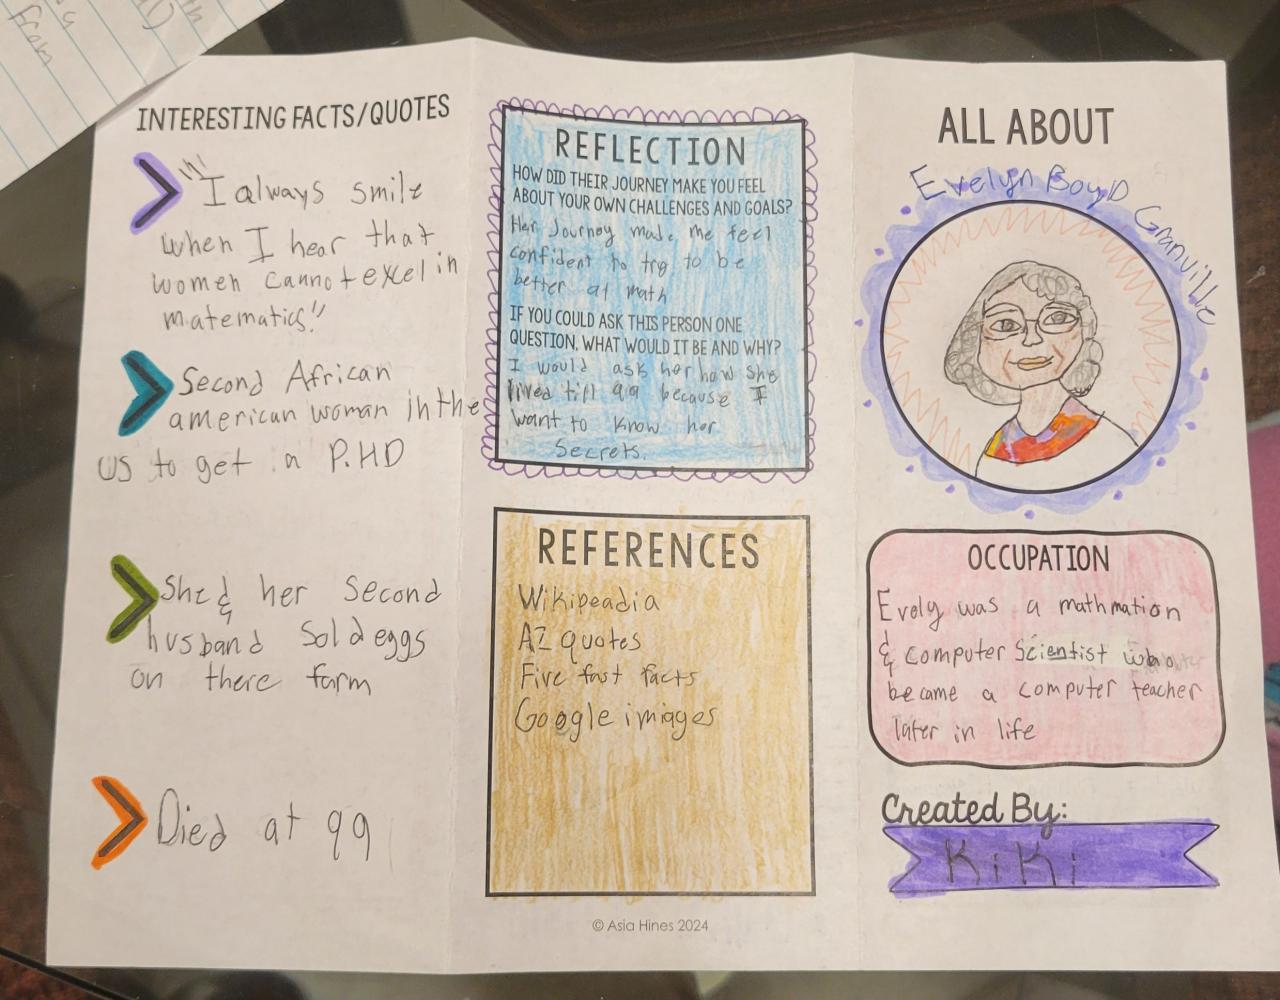 from
INTERESTING FACTS/QUOTES
"I always smile
when I hear that
women cannot excel in
matematics!"
Second African
american woman in the
US to get a P.HD
She & her second
husband sold eggs
on there farm
Died at 99
REFLECTION
HOW DID THEIR JOURNEY MAKE YOU FEEL
ABOUT YOUR OWN CHALLENGES AND GOALS?
Her Journey made me feel
confident to try to be
better at math
IF YOU COULD ASK THIS PERSON ONE
QUESTION, WHAT WOULD IT BE AND WHY?
I would ask her how she
lived till 99 because I
want to know her
Secrets.
REFERENCES
Wikipeadia
AZ quotes
Five fast facts
Google imiages
© Asia Hines 2024
ALL ABOUT
Evelyn Boyd Granville
OCCUPATION
Evely was a mathmation
& computer Scientist who
became a computer teacher
later in life
Created By:
KiKi